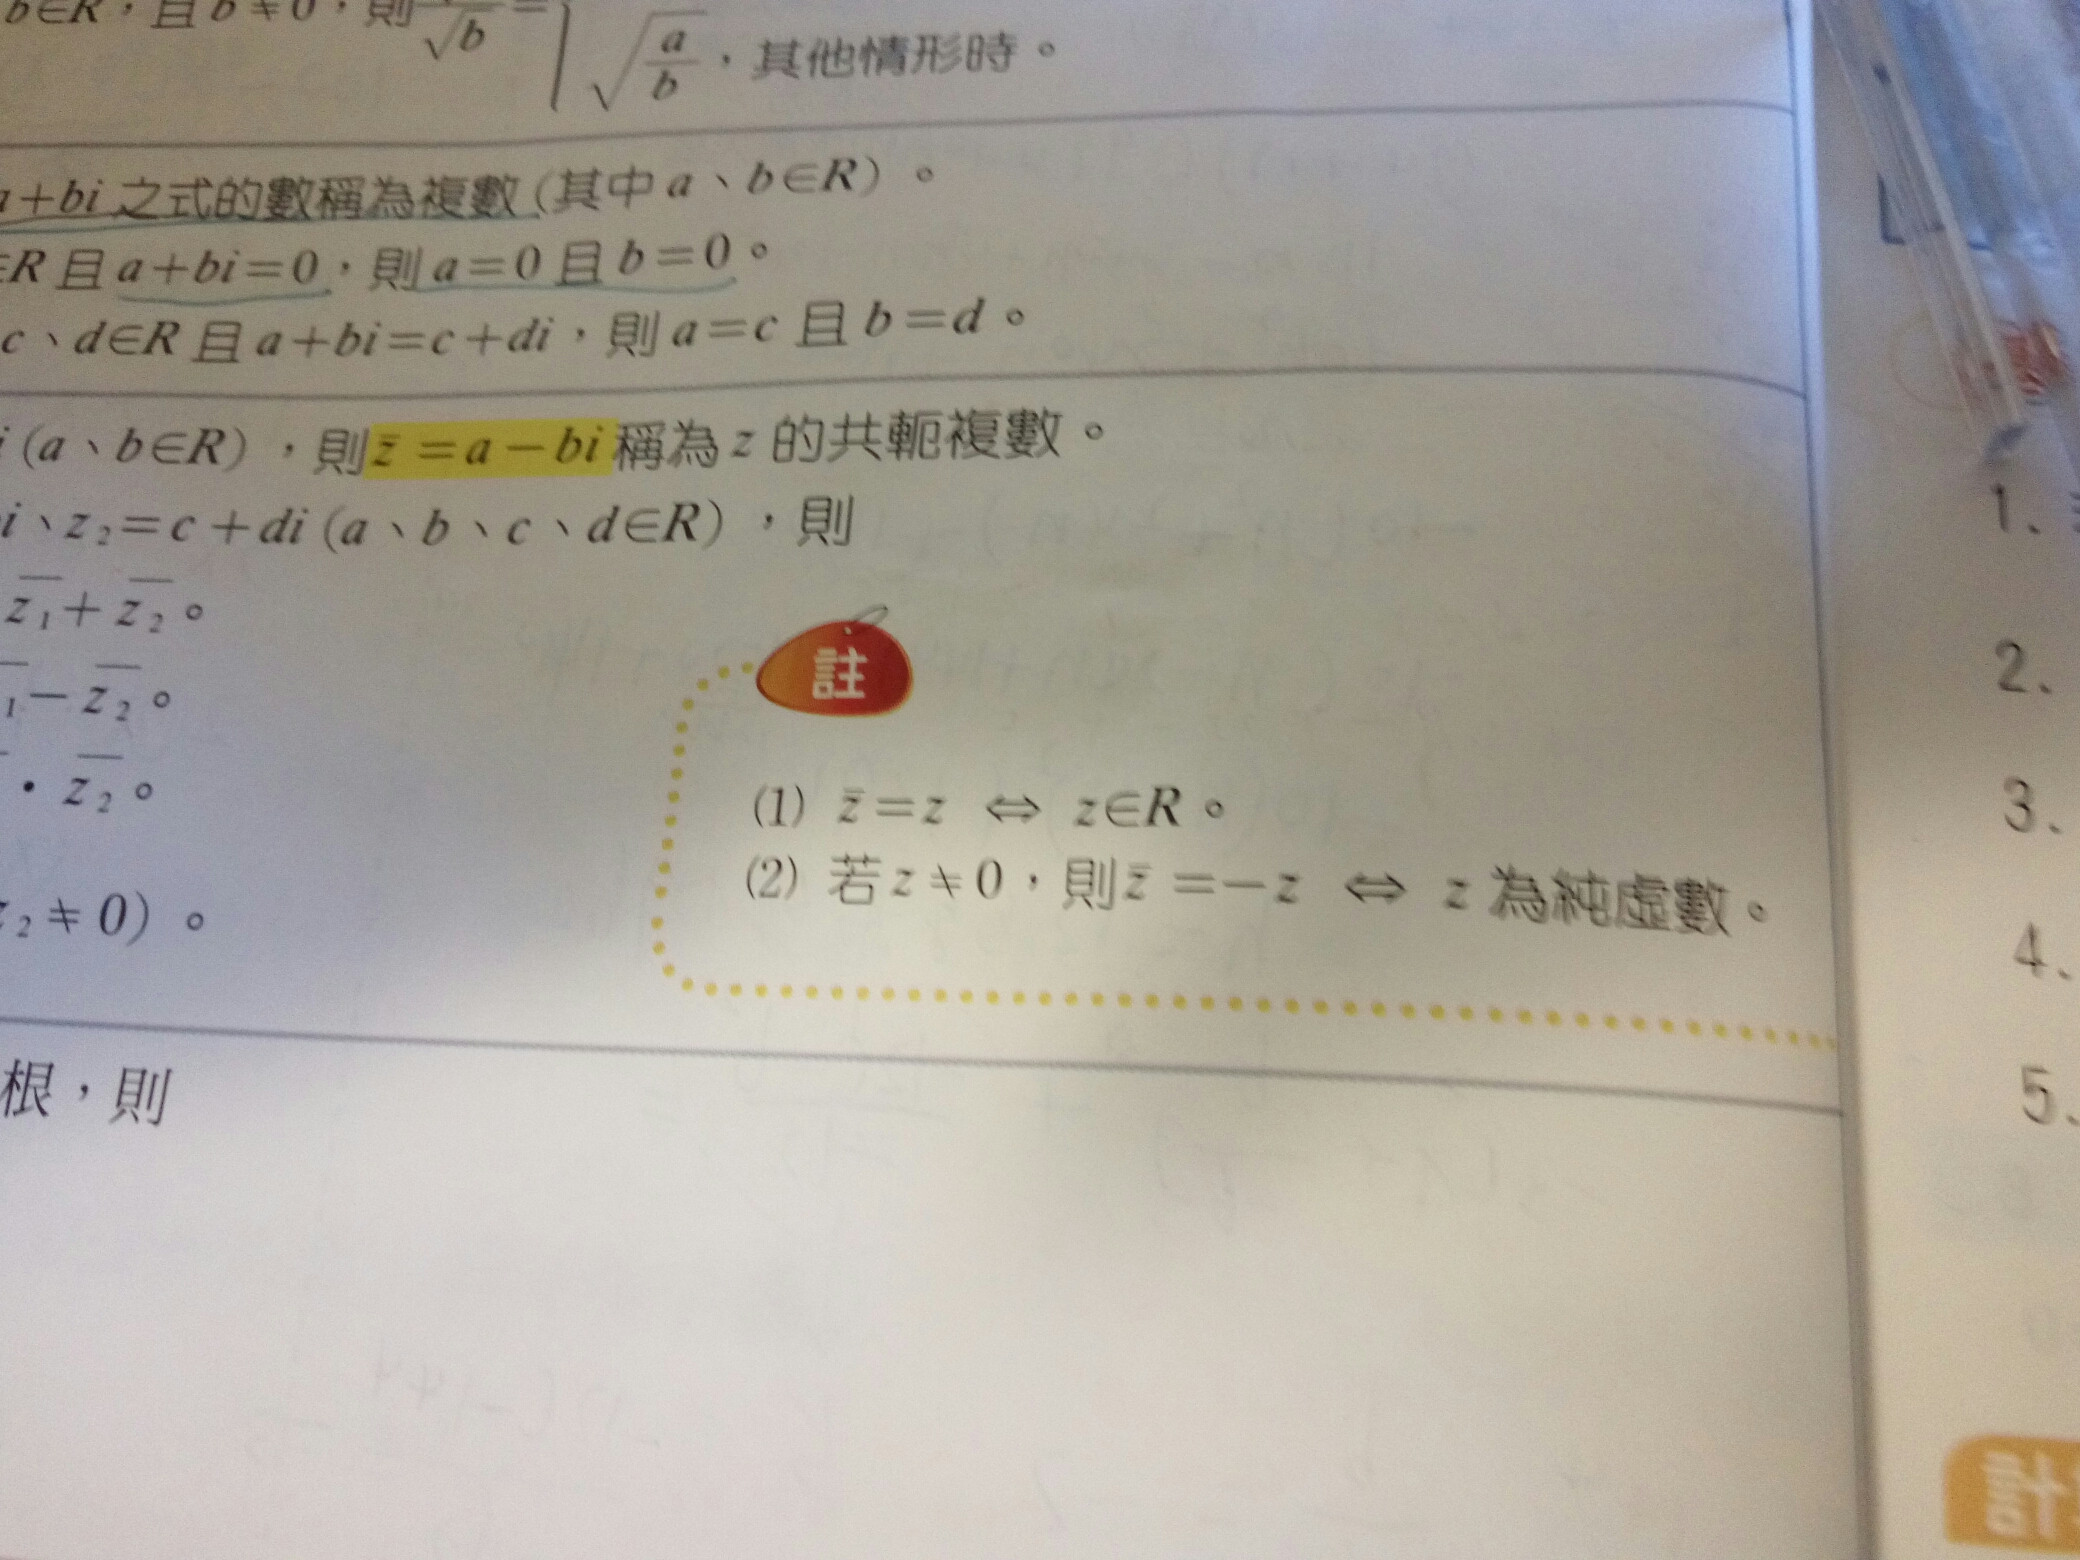 b∈R，且b≠0，則 √b = √(a/b)，其他情形時。
a+bi之式的數稱為複數(其中a、b∈R)。
∈R且a+bi=0，則a=0且b=0。
c、d∈R且a+bi=c+di，則a=c且b=d。
i(a、b∈R)，則z̄=a-bi稱為z的共軛複數。
i、z₂=c+di(a、b、c、d∈R)，則
z̄₁+z̄₂。
₁-z̄₂。
註
· z̄₂。
(1) z̄=z ⇔ z∈R。
(2) 若z≠0，則z̄=-z ⇔ z為純虛數。
z₂≠0)。
根，則
1.
2.
3.
4.
5.